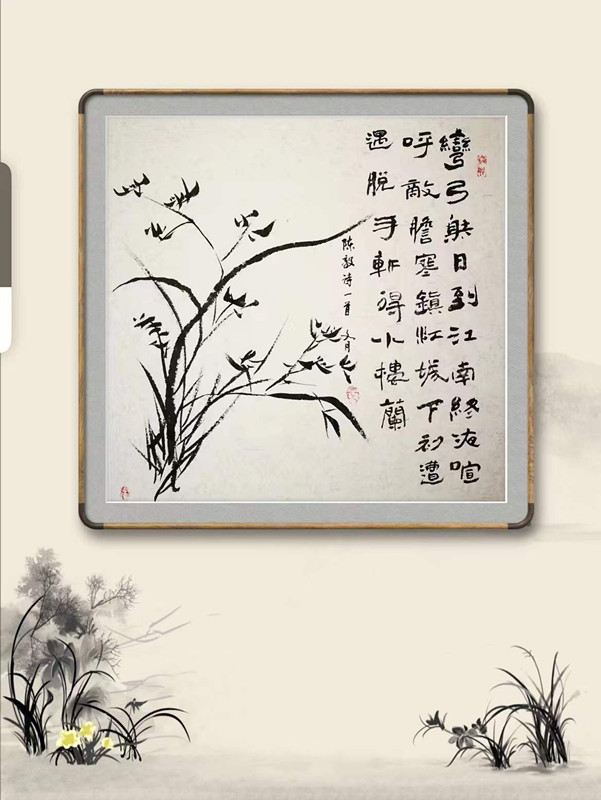 彎弓射日到江南終夜喧
呼敵膽寒鎮江城下初遭
遇脫手斬得小樓蘭
陳毅詩一首